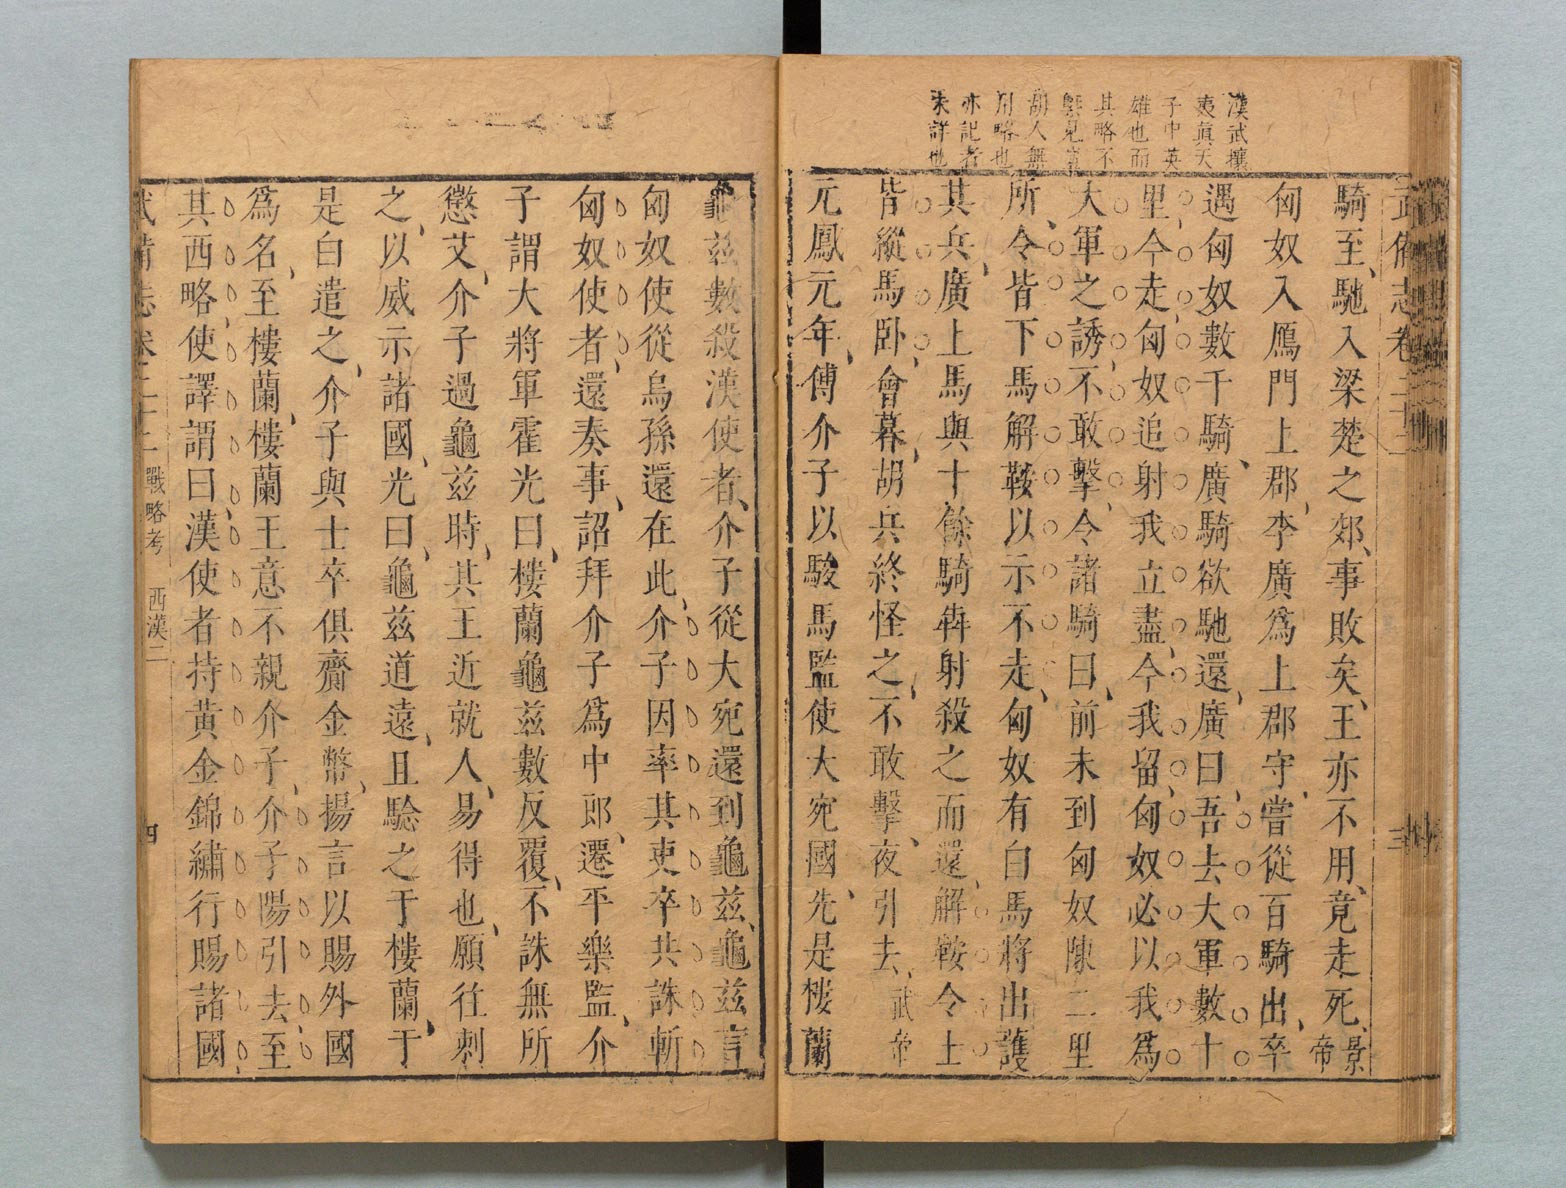 武備志卷二十二
三
漢武攘
夷眞天
子中英
雄也而
其略不
槩見豈
胡人無
用略也
亦記者
未詳也
騎至、馳入梁楚之郊、事敗矣、王亦不用、竟走死、景帝
匈奴入鴈門上郡、李廣爲上郡守、嘗從百騎出、卒
遇匈奴數千騎、廣騎欲馳還、廣曰、吾去大軍數十
里、今走、匈奴追射我立盡、今我留、匈奴必以我爲
大軍之誘、不敢擊、令諸騎曰、前未到匈奴陳二里
所、令皆下馬解鞍以示不走、匈奴有白馬將出護
其兵、廣上馬與十餘騎犇射殺之而還、解鞍令士
皆縱馬卧、會暮、胡兵終怪之、不敢擊、夜引去、武帝
元鳳元年、傅介子以駿馬監使大宛國、先是樓蘭
龜茲數殺漢使者、介子從大宛還到龜茲、龜茲言
匈奴使從烏孫還在此、介子因率其吏卒共誅斬
匈奴使者、還奏事、詔拜介子爲中郎、遷平樂監、介
子謂大將軍霍光曰、樓蘭龜茲數反覆、不誅無所
懲艾、介子過龜茲時、其王近就人、易得也、願往刺
之、以威示諸國、光曰、龜茲道遠、且驗之于樓蘭、于
是白遣之、介子與士卒俱齎金幣、揚言以賜外國
爲名、至樓蘭、樓蘭王意不親介子、介子陽引去、至
其西略使譯謂曰、漢使者持黃金錦繡行賜諸國、
武備志卷二十二 戰略考 西漢二
四